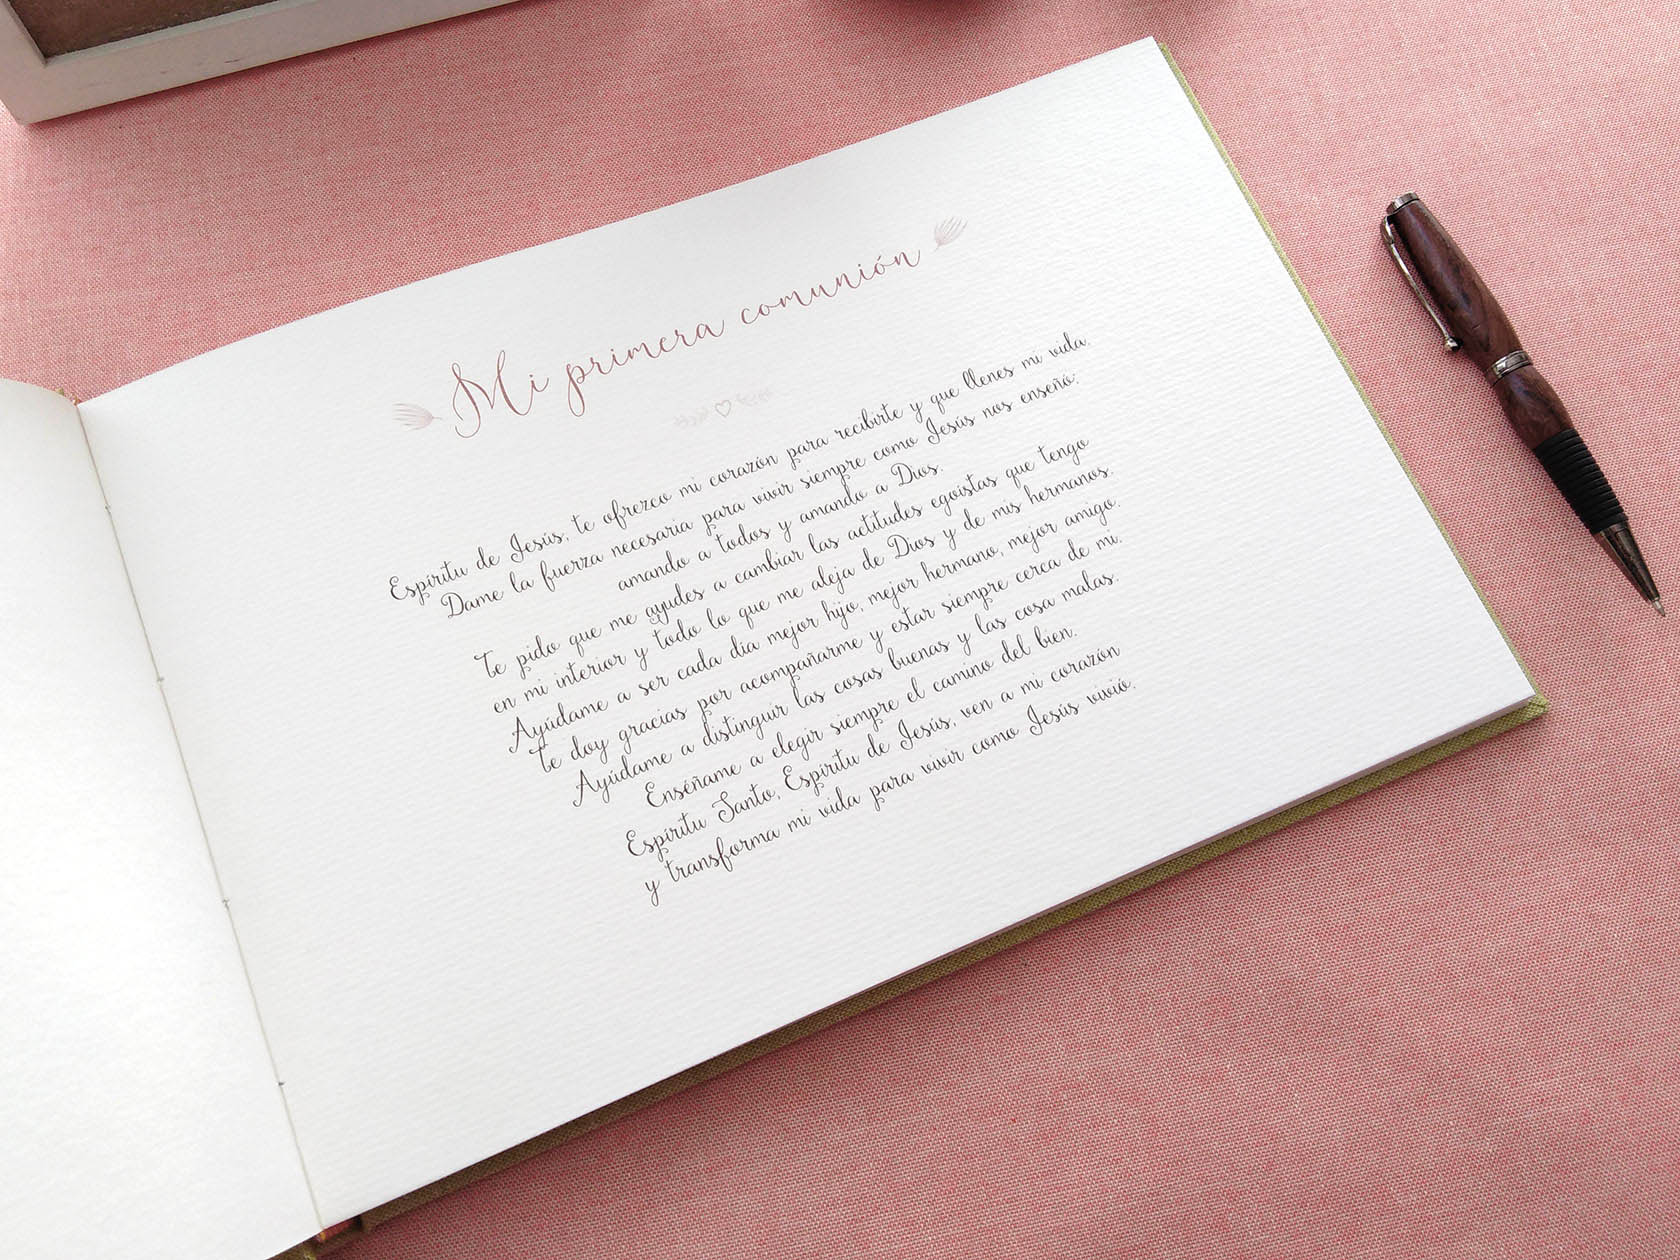 Mi primera comunión
Espíritu de Jesús, te ofrezco mi corazón para recibirte y que llenes mi vida.
Dame la fuerza necesaria para vivir siempre como Jesús nos enseñó:
amando a todos y amando a Dios.
Te pido que me ayudes a cambiar las actitudes egoístas que tengo
en mi interior y todo lo que me aleja de Dios y de mis hermanos.
Ayúdame a ser cada día mejor hijo, mejor hermano, mejor amigo.
Te doy gracias por acompañarme y estar siempre cerca de mi.
Ayúdame a distinguir las cosas buenas y las cosa malas.
Enséñame a elegir siempre el camino del bien.
Espíritu Santo, Espíritu de Jesús, ven a mi corazón
y transforma mi vida para vivir como Jesús vivió.